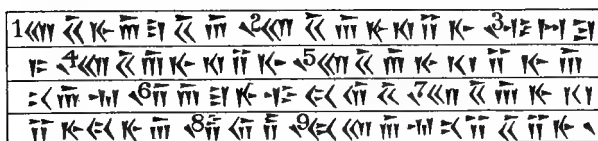 1𐎧𐏁𐎹𐎠𐎼𐏁𐎠 𐏐2𐎧𐏁𐎠𐎹𐎰𐎡𐎹 𐏐3𐎺𐏀𐎼
𐎣 𐏐4𐎧𐏁𐎠𐎹𐎰𐎡𐎹 𐏐5𐎧𐏁𐎠𐎹𐎰𐎡𐎹𐎠
𐎴𐎠𐎶 𐏐6𐎭𐎠𐎼𐎹𐎺𐏃𐎢𐏁 𐏐7𐎧𐏁𐎠𐎹𐎰
𐎡𐎹𐏃𐎹𐎠 𐏐8𐎱𐎢𐏂 𐏐9𐏃𐎧𐎠𐎶𐎴𐎡𐏁𐎡𐎹 𐏐